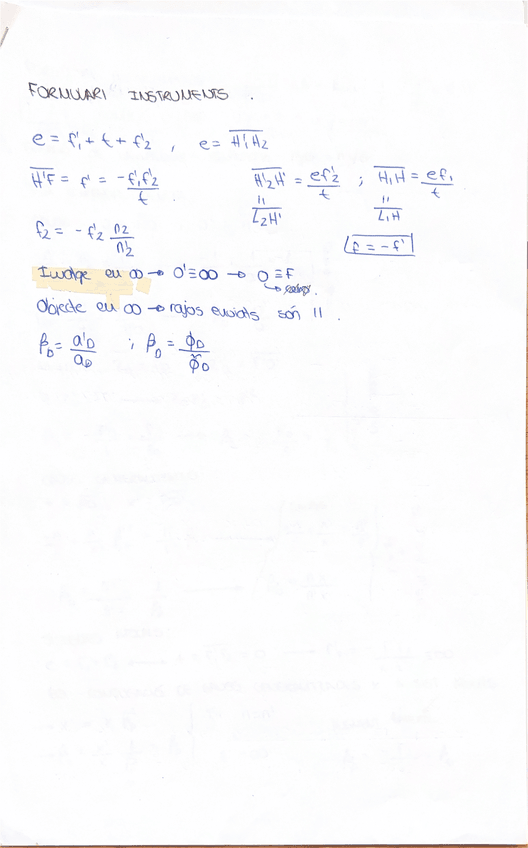 FORMULARI INSTRUMENTS .
e = f'₁ + t + f'₂ , e = H'₁H₂
H'F' = f' = -f'₁f'₂/t H'₂H' = ef'₂/t ; H₁H = ef₁/t
= L₂H' = L₁H
f₂ = -f'₂ n₂/n'₂ f = -f'
Imatge en ∞ → O' ≡ ∞ → O ≡ F
Objecte en ∞ → rajos envials són || .
β_D = a'D/aD ; β_D = ϕD/ϕ̃D